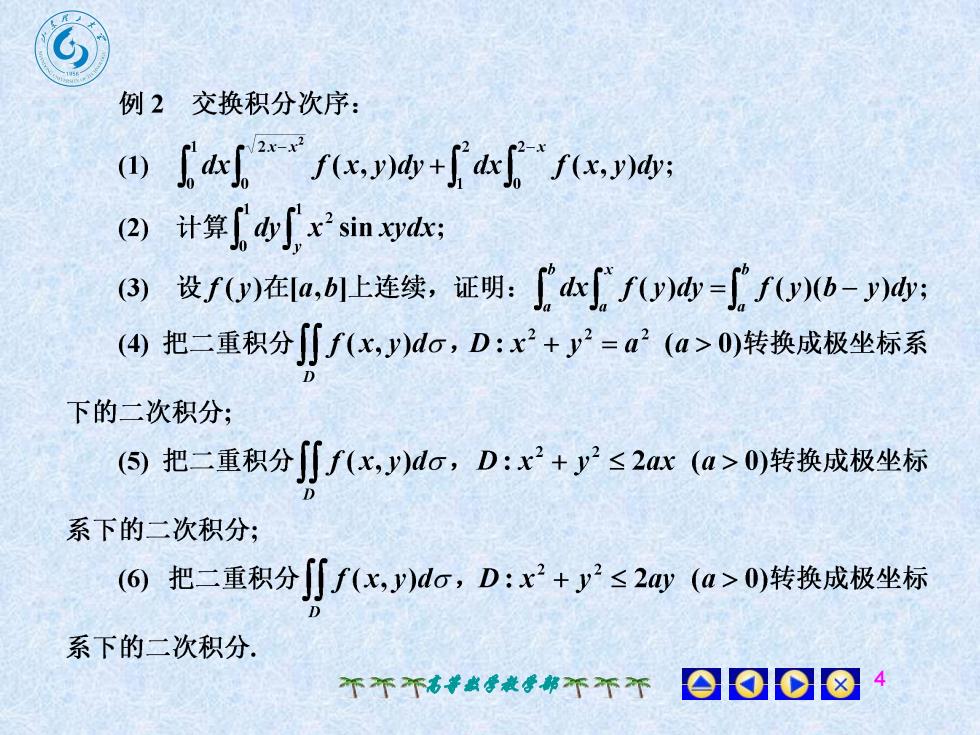 例 2 交换积分次序：
(1) ∫₀¹ dx ∫₀^{√(2x−x²)} f(x, y)dy + ∫₁² dx ∫₀^{2−x} f(x, y)dy;
(2) 计算 ∫₀¹ dy ∫_y^1 x² sin xydx;
(3) 设 f(y)在[a,b]上连续，证明：∫_a^b dx ∫_a^x f(y)dy = ∫_a^b f(y)(b − y)dy;
(4) 把二重积分 ∬_D f(x, y)dσ，D : x² + y² = a² (a > 0)转换成极坐标系
下的二次积分;
(5) 把二重积分 ∬_D f(x, y)dσ，D : x² + y² ≤ 2ax (a > 0)转换成极坐标
系下的二次积分;
(6) 把二重积分 ∬_D f(x, y)dσ，D : x² + y² ≤ 2ay (a > 0)转换成极坐标
系下的二次积分.
高等数学教学部
4